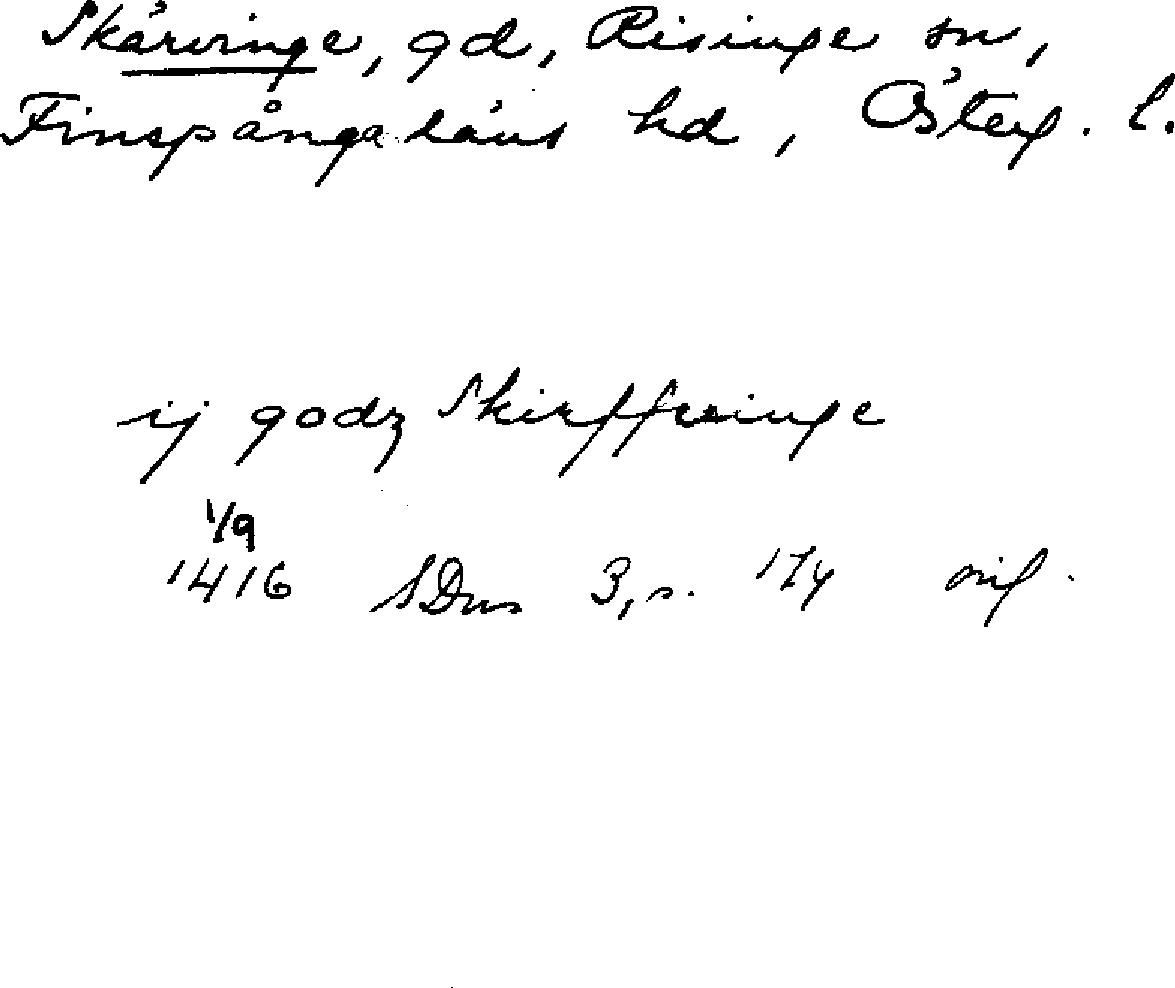 Skärvinge, gd, Risinge sn,
Finspånga läns hd, Österg. l.
ij godz Skirffwinge
1/9
1416 SDns 3, s. 174 orig.